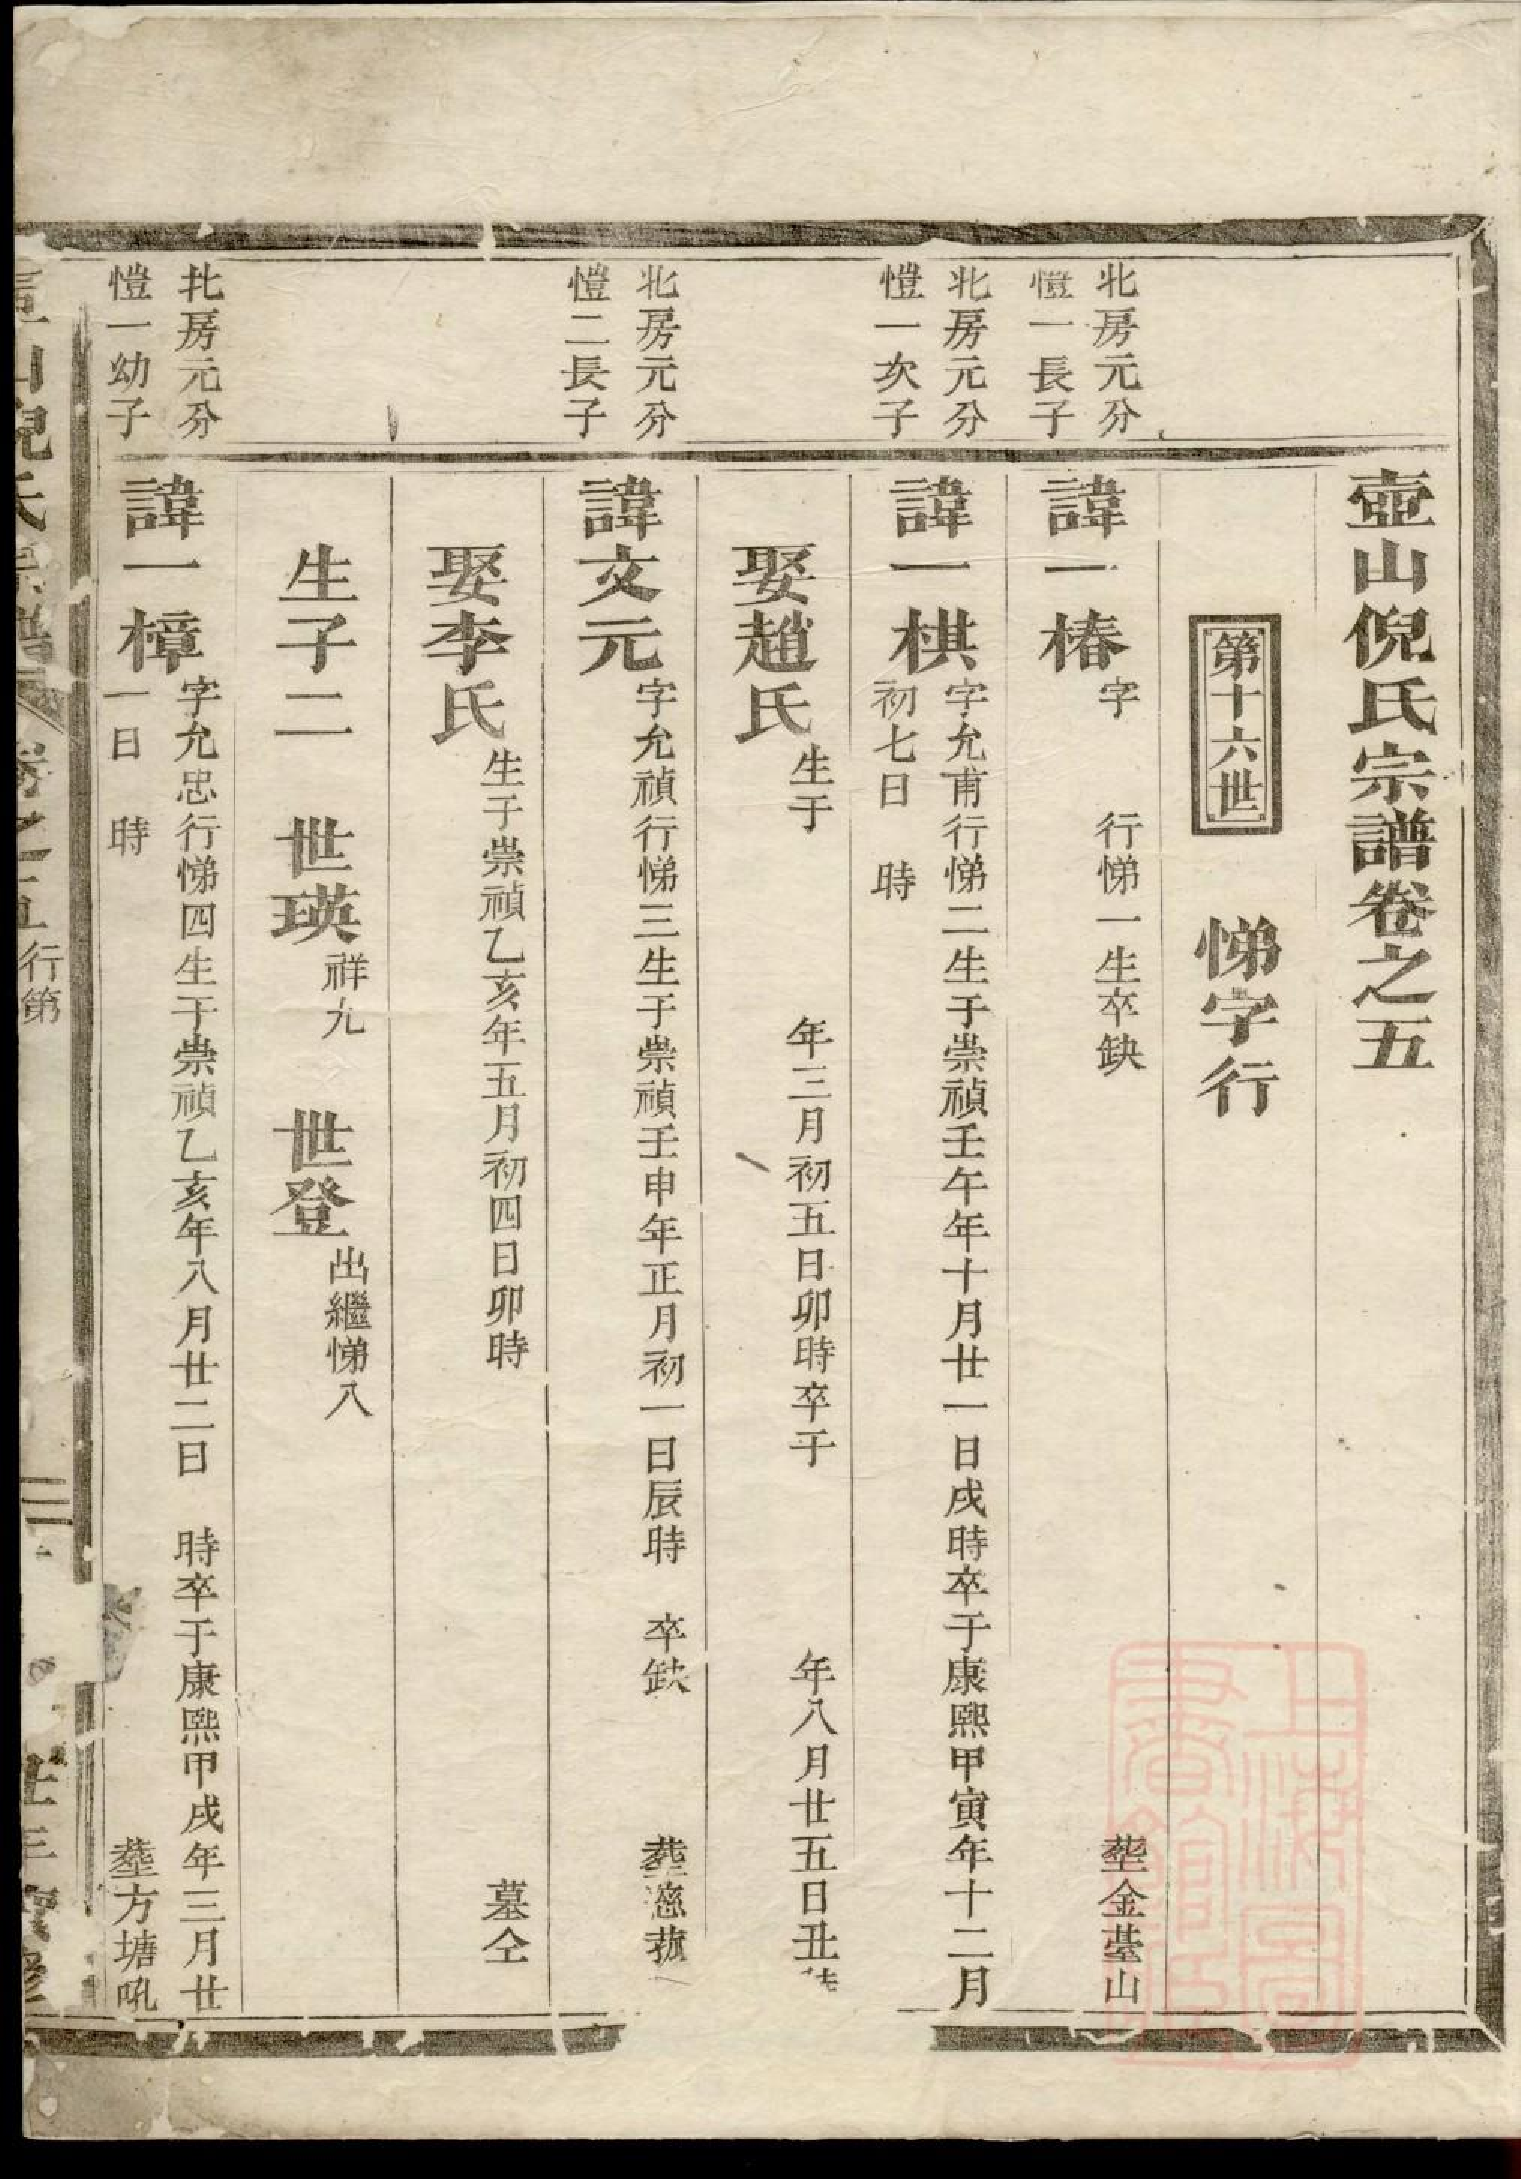 壺山倪氏宗譜卷之五
第十六世
悌字行
北房元分
愷一長子
諱一椿
字 行悌一生卒缺
塟金䑓山
北房元分
愷一次子
諱一棋
字允甫行悌二生于崇禎壬午年十月廿一日戌時卒于康熙甲寅年十二月
初七日 時
娶趙氏
生于 年三月初五日卯時卒于 年八月廿五日丑
北房元分
愷二長子
諱文元
字允禎行悌三生于崇禎壬申年正月初一日辰時 卒缺
娶李氏
生于崇禎乙亥年五月初四日卯時
墓仝
生子二 世瑛 祥九 世登 出繼悌八
北房元分
愷一幼子
諱一樟
字允忠行悌四生于崇禎乙亥年八月廿二日 時卒于康熙甲戌年三月廿
一日 時
塟方塘吼
山倪氏宗譜 卷之五 行第
上海圖書館藏